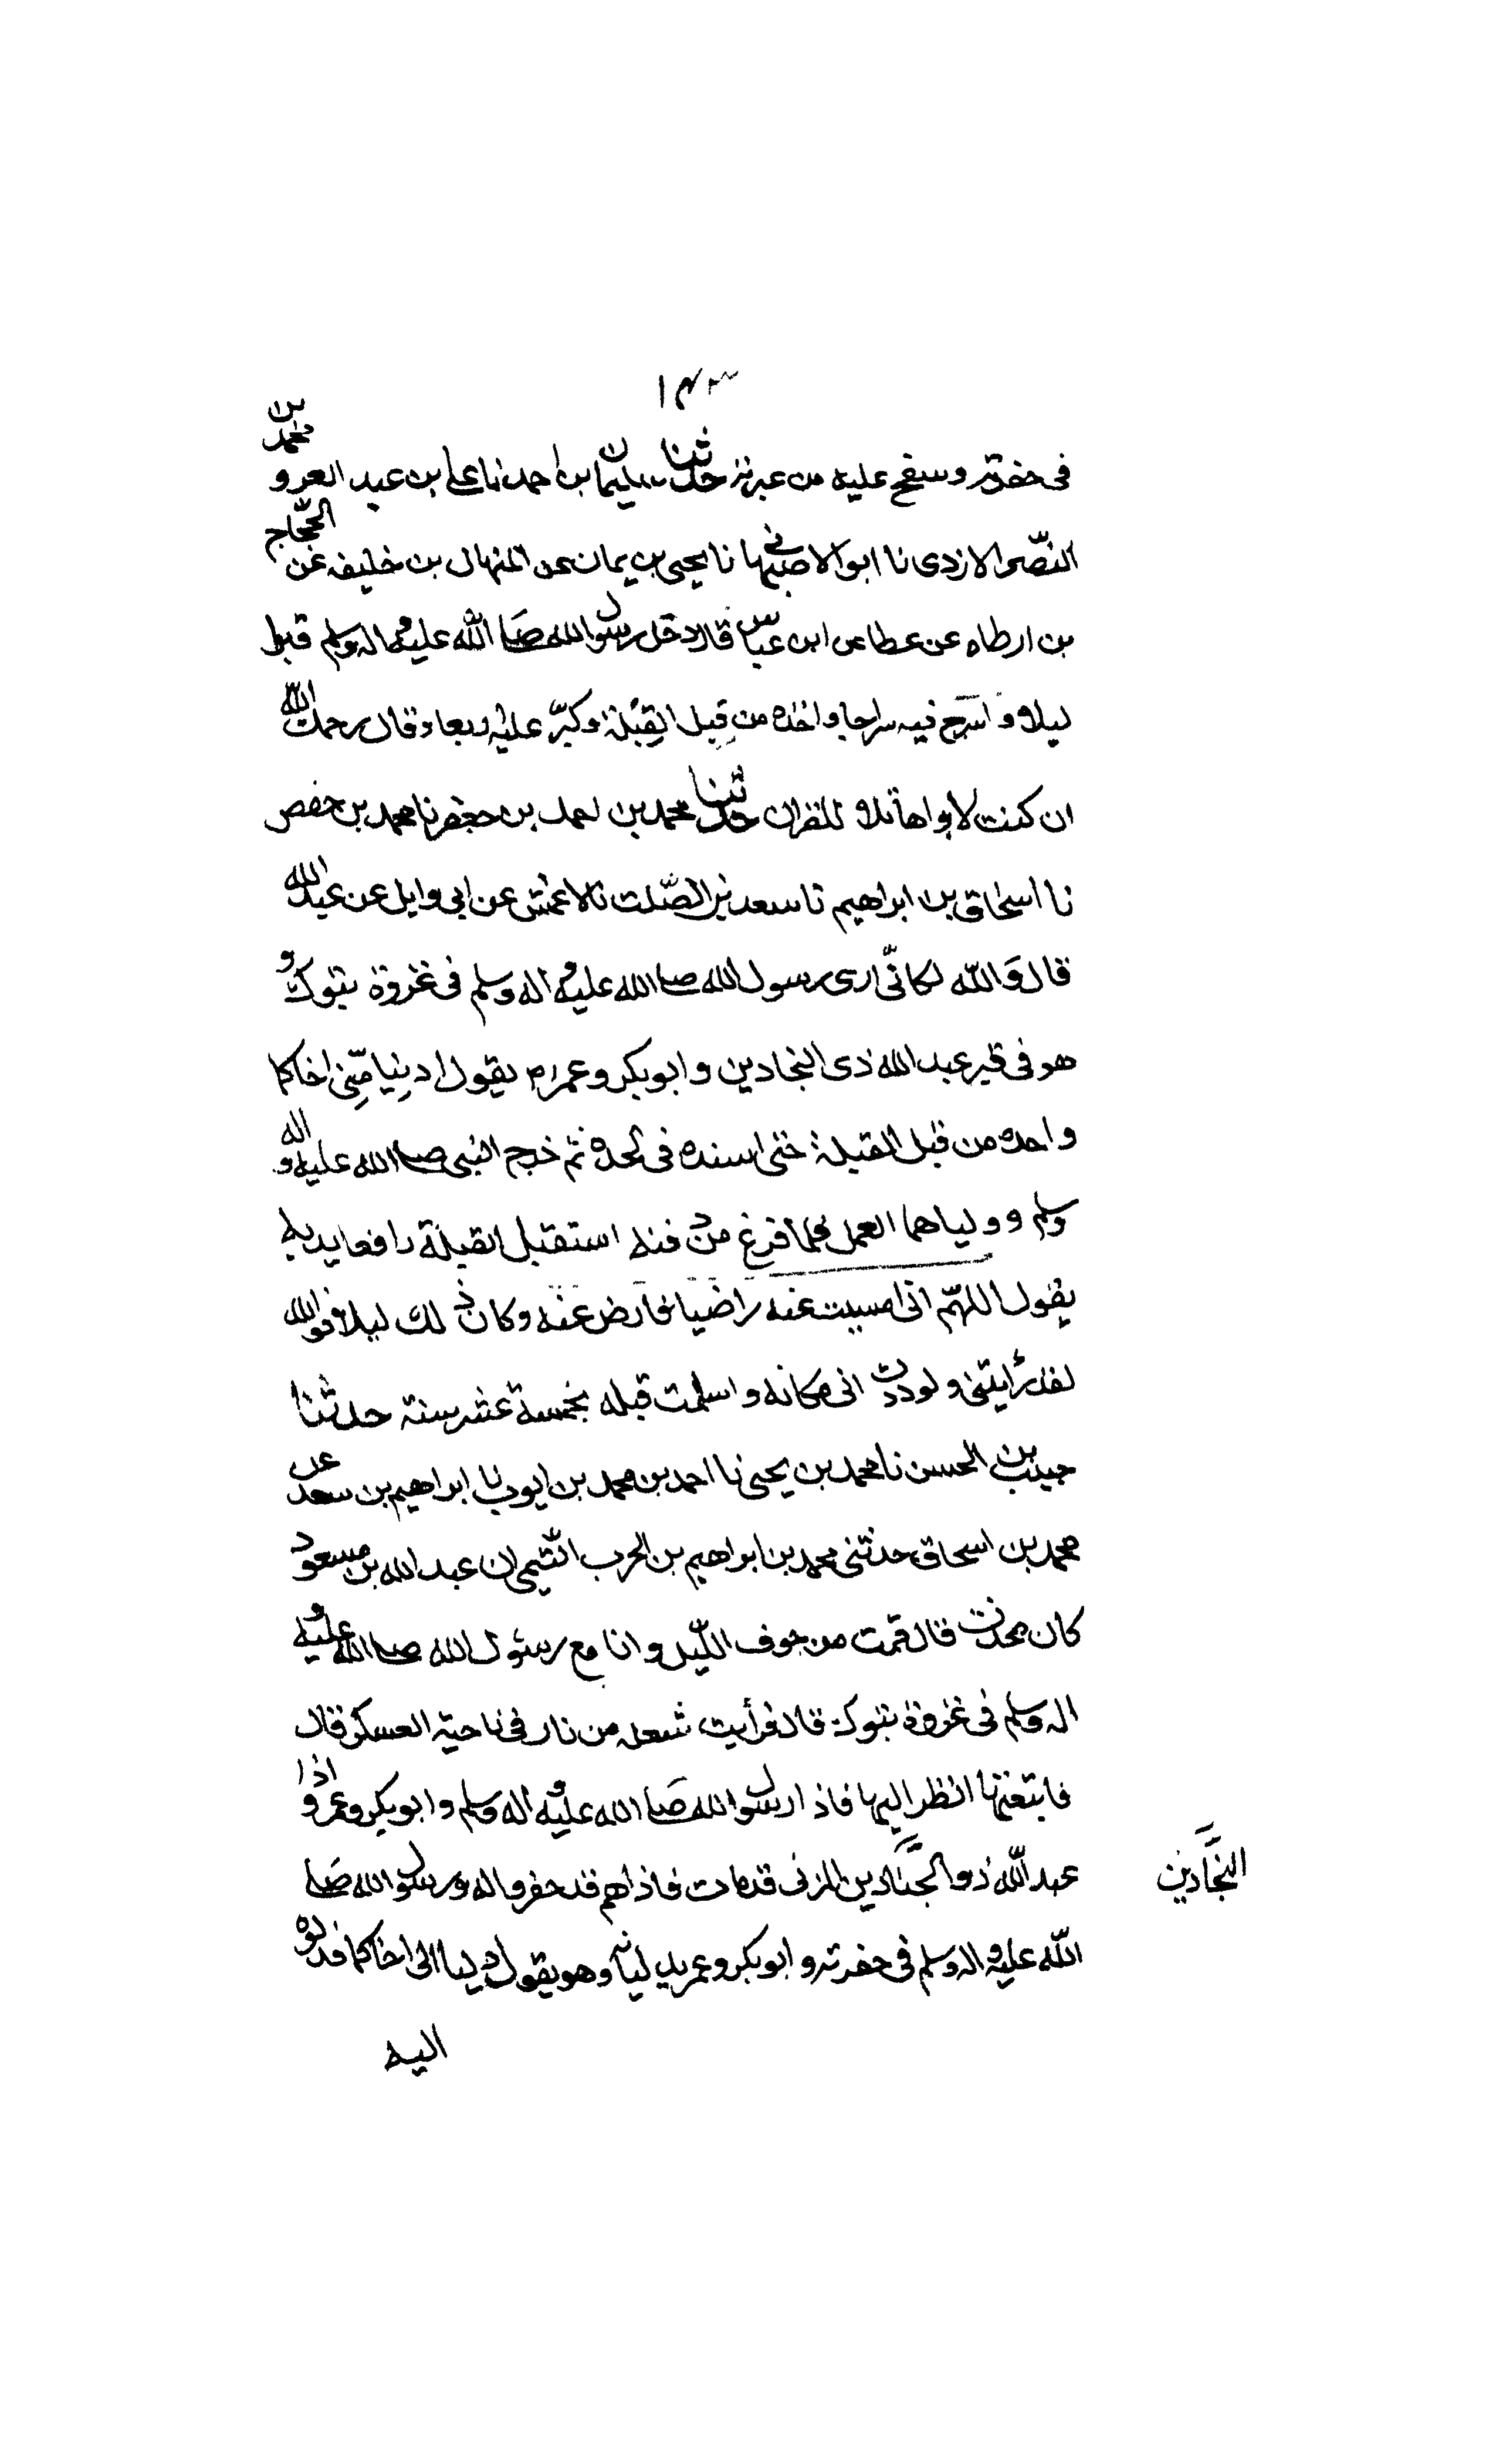 ١٤٣
في حفرته وسفح عليه من عبرته حدثنا سليمان بن احمد نا علي بن عبد العزيز ومحمد بن
النضر الازدي نا ابن الاصبهاني نا يحيى بن يمان عن المنهال بن خليفه عن الحجاج
بن ارطاه عن عطا عن ابن عباس قال دخل رسول الله صلى الله عليه واله وسلم قبرا
ليلا و اسرج فيه سراجا واخذه من قبل القبلة وكبّر عليه اربعا وقال رحمك الله
ان كنت لاواها تلاء للقران حدثنا محمد بن احمد بن جعفر نا محمد بن حفص
نا اسحاق بن ابراهيم نا سعد بن الصّلت نا الاعمش عن ابي وايل عن عبد الله
قال وَالله لكانّي ارى رسول الله صلى الله عليه واله وسلم في غزوة تبوك و
هو في قبر عبد الله ذى النجادين وابو بكر وعمر يقول ادنِيا مِنّي اخاكما
واخذه من قبل القبلة حتى اسنده في لحده ثم خرج النبي صلى الله عليه واله
وسلم و ولياهما العمل فلما فرغ من دفنه استقبل القبلة رافعا يديه
يقول اللهمّ اني امسيت عنه راضيا فارض عنه وكان ذلك ليلا فوالله
لقد رأيتني ولوددت اني مكانه واسلمت قبله بخمسة عشر سنة حدثنا
حبيب بن الحسن نا محمد بن يحيى نا احمد بن محمد بن ايوب نا ابراهيم بن سعد عن
محمد بن اسحاق حدثني محمد بن ابراهيم بن الحرب التّيمي ان عبد الله بن مسعود
كان يحدث قال قمت من جوف اللّيل وانا مع رسول الله صلى الله عليه و
اله وسلم في غزوة تبوك قال فرأيت شعله من نار في ناحية العسكر قال
فابتغيتها انظر اليها فاذا رسول الله صَلى الله عليه واله وسلم وابو بكر وعمر و اذا
عبد الله ذو الجنادين المزني قد مات فاذا هم قد حفروا له ورسول الله صَلى
الله عليه واله وسلم في حفرته و ابو بكر وعمر يدليانه وهو يقول ادليا الى اخاكما فدلوه
النجَّادين
اليه